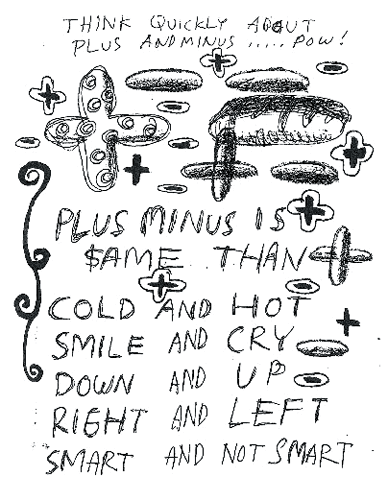 THINK QUICKLY ABOUT
PLUS AND MINUS ..... POW!
PLUS MINUS IS
SAME THAN
COLD AND HOT
SMILE AND CRY
DOWN AND UP
RIGHT AND LEFT
SMART AND NOT SMART